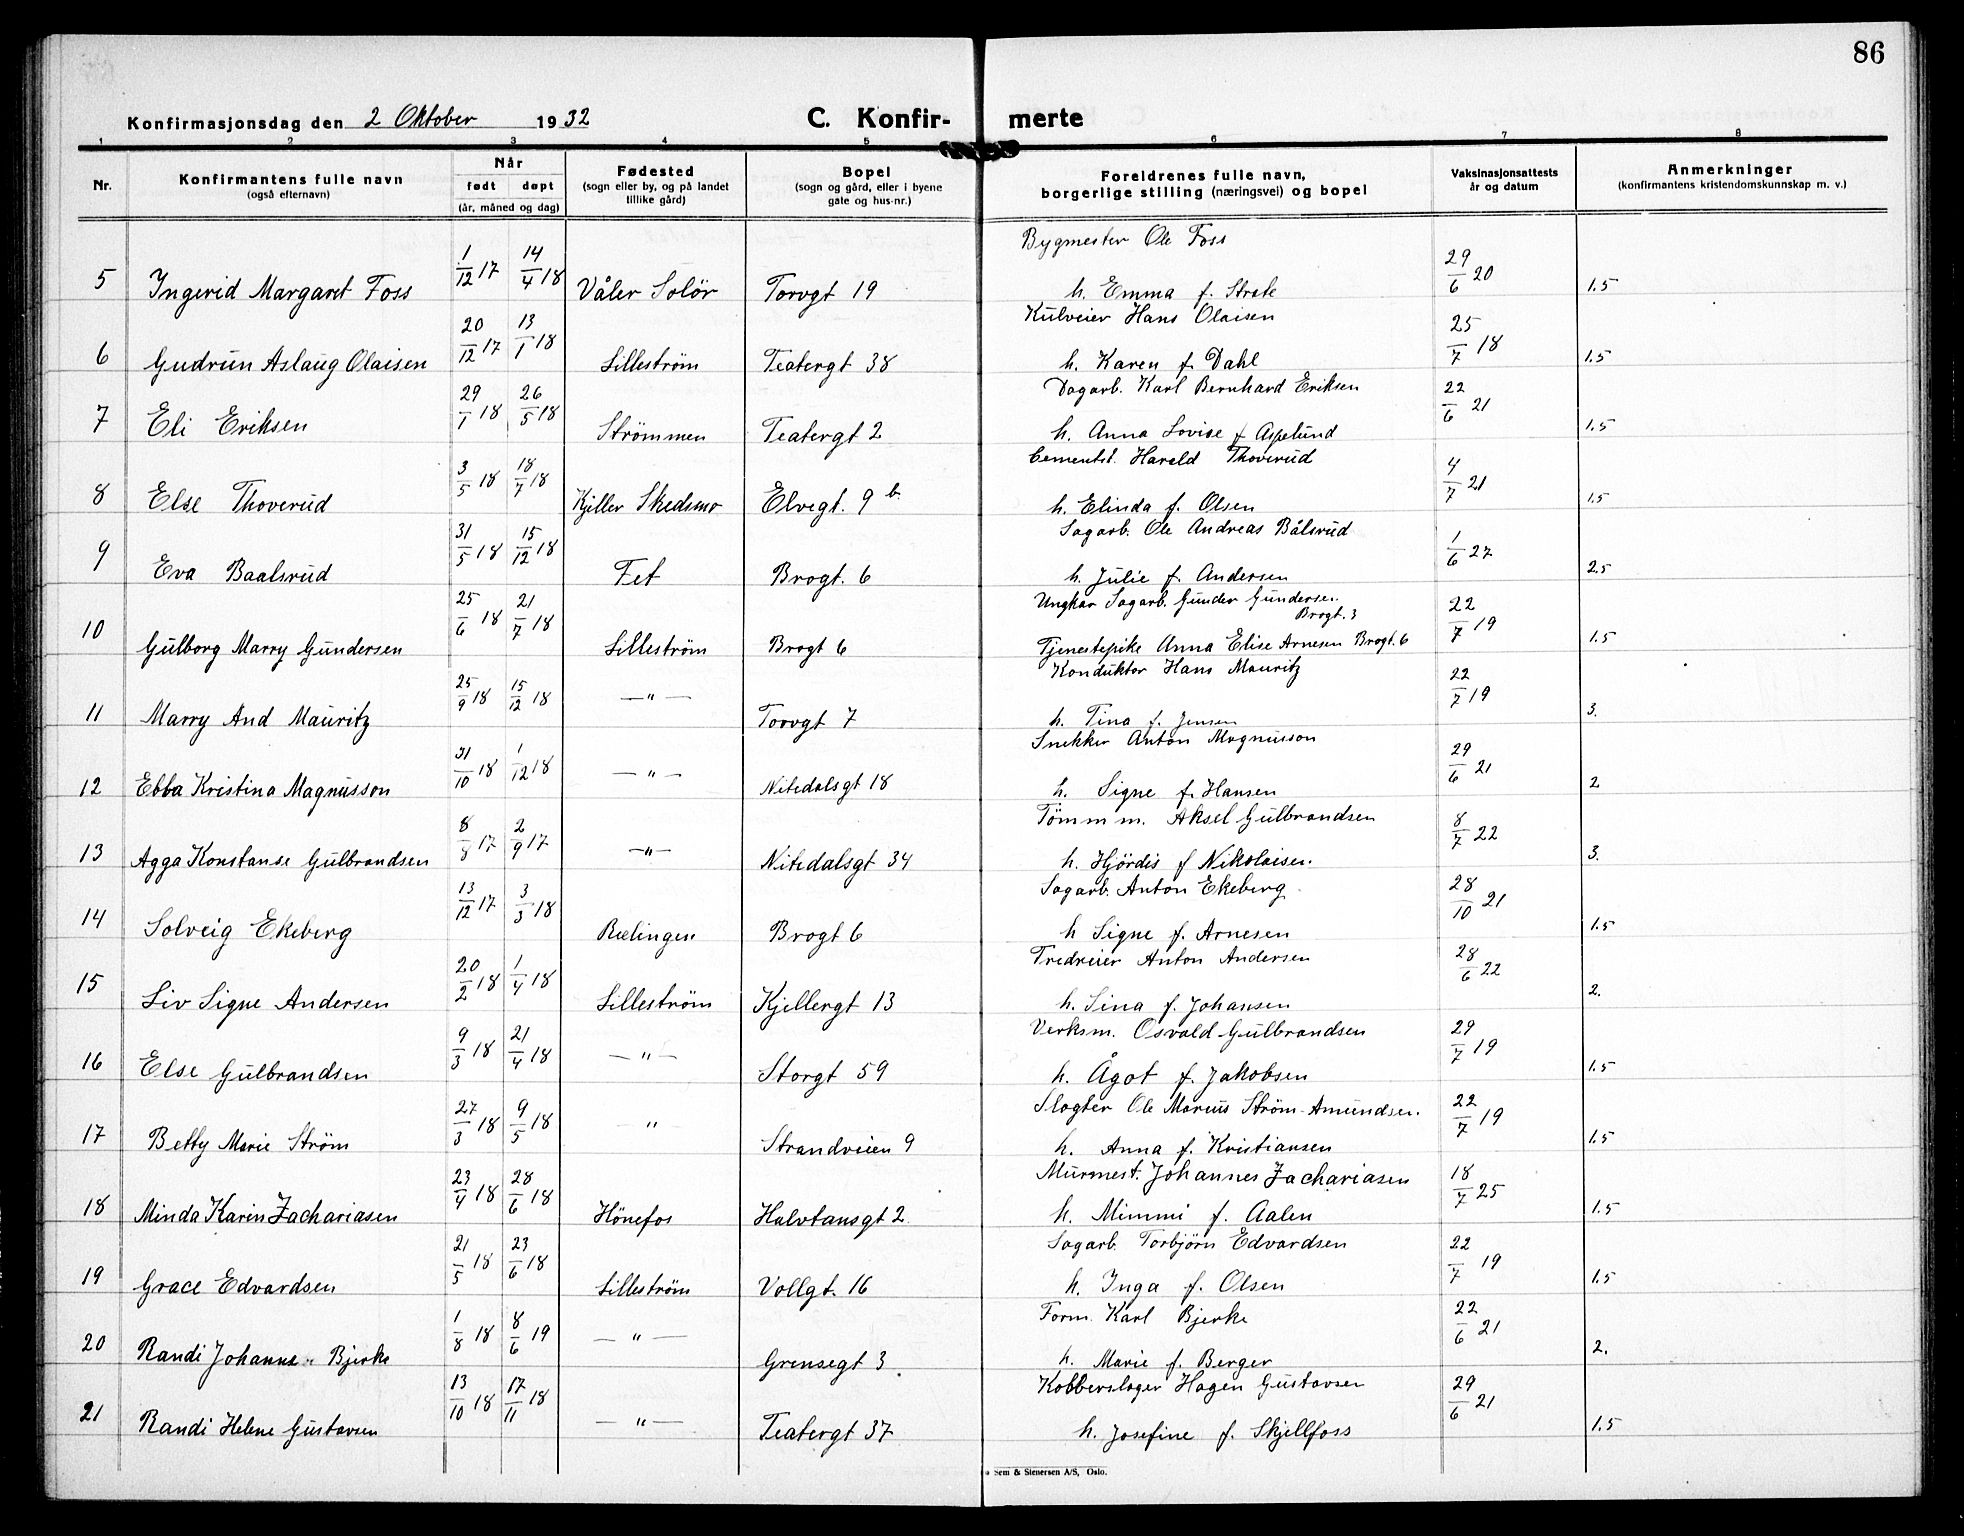 86
Konfirmasjonsdag den 2 Oktober 1932 C. Konfir- merte
1 2 3 4 5 6 7 8
Nr. Konfirmantens fulle navn (også efternavn) Når født døpt (år, måned og dag) Fødested (sogn eller by, og på landet tillike gård) Bopel (sogn og gård, eller i byene gate og hus-nr.) Foreldrenes fulle navn, borgerlige stilling (næringsvei) og bopel Vaksinasjonsattests år og datum Anmerkninger (konfirmantens kristendomskunnskap m. v.)
Bygmester Ole Foss
5 Ingerid Margaret Foss 1/12 17 14/4 18 Våler Solør Torvgt 19 h. Emma f. Strate 29/6 20 1.5
Kulveier Hans Olaisen
6 Gudrun Aslaug Olaisen 20/12 17 13/1 18 Lilleström Teatergt 38 h. Karen f. Dahl 25/7 18 1.5
Dagarb. Karl Bernhard Eriksen
7 Eli Eriksen 29/1 18 26/5 18 Strömmen Teatergt 2 h. Anna Lovise f Aspelund 22/6 21 1.5
Cementst. Harald Thoverud
8 Else Thoverud 3/5 18 18/7 18 Kjeller Skedsmo Elvegt. 9 b. h. Elinda f. Olsen 4/7 21 1.5
Sagarb. Ole Andreas Bålsrud
9 Eva Baalsrud 31/5 18 15/12 18 Fet Brogt. 6 h. Julie f. Andersen 1/6 27 2.5
Ungkar Sagarb. Gunder Gundersen. Brogt. 3
10 Gulborg Marry Gundersen 25/6 18 21/7 18 Lilleström Brogt 6 Tjenestepike Anna Elise Arnesen Brogt. 6 22/7 19 1.5
Konduktør Hans Mauritz
11 Marry And Mauritz 25/9 18 15/12 18 — " — Torvgt 7 h. Tina f. Jensen 22/7 19 3.
Snekker Anton Magnusson
12 Ebba Kristina Magnusson 31/10 18 1/12 18 — " — Nitedalsgt 18 h. Signe f. Hansen 29/6 21 2
Tömm m. Aksel Gulbrandsen
13 Agga Konstanse Gulbrandsen 8/8 17 2/9 17 — " — Nitedalsgt 34 h. Hjördis f Nikolaisen. 8/7 22 3.
Sagarb. Anton Ekeberg
14 Solveig Ekeberg 13/12 17 3/3 18 Rælingen Brogt 6 h Signe f. Arnesen 28/10 21 1.5
Tredreier Anton Andersen
15 Liv Signe Andersen 20/2 18 1/4 18 Lilleström Kjellergt 13 h. Sina f. Johansen 28/6 22 2.
Verksm. Osvald Gulbrandsen
16 Else Gulbrandsen 9/3 18 21/4 18 — " — Storgt 59 h. Ågot f. Jakobsen 29/7 19 1.5
Slagter Ole Marius Ström-Amundsen.
17 Betty Marie Ström 27/3 18 9/5 18 " Strandveien 9 h. Anna f. Kristiansen 22/7 19 1.5
Murmest. Johannes Zachariasen
18 Minda Karin Zachariasen 23/4 18 28/6 18 Hönefos Halvtansgt 2. h. Mimmi f. Aalen 18/7 25 1.5
Sagarb. Torbjörn Edvardsen
19 Grace Edvardsen 21/5 18 23/6 18 Lilleström Vollgt. 16 h. Inga f. Olsen 22/7 19 1.5
Form. Karl Bjerke
20 Randi Johanne Bjerke 1/8 18 8/6 19 — " — Grensegt 3 h. Marie f. Berger 22/6 21 2.
Kobberslager Hagen Gustavsen
21 Randi Helene Gustavsen 13/10 18 17/11 18 — " — Teatergt 37 h. Josefine f. Skjellfoss 29/6 21 1.5
Sem & Stenersen A/S, Oslo.